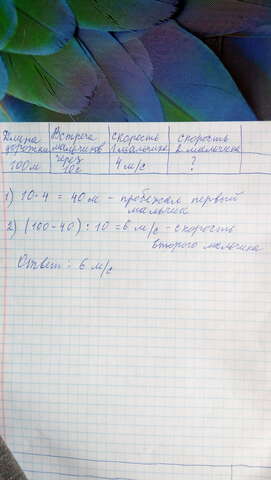 Длина дорожки | Встреча мальчиков | скорость 1 мальчика | скорость 2 мальчика
100м | через 10с | 4 м/с | ?
1) 10·4 = 40м – пробежал первый
мальчик
2) (100-40) : 10 = 6 м/с – скорость
второго мальчика
Ответ: 6 м/с